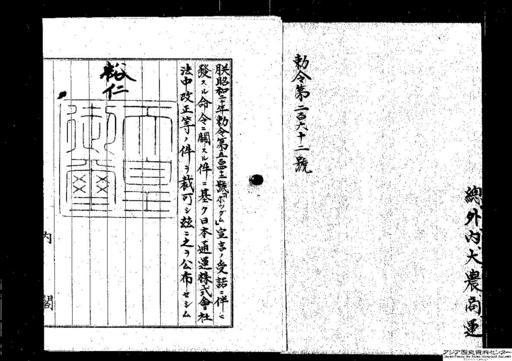 勅令第二百六十二號
總外内大農商運
朕昭和二十年勅令第五百四十二號「ポツダム」宣言ノ受諾ニ伴ヒ
發スル命令ニ關スル件ニ基ク日本通運株式會社
法中改正等ノ件ヲ裁可シ茲ニ之ヲ公布セシム
裕仁
天皇御璽
内閣
アジア歴史資料センター